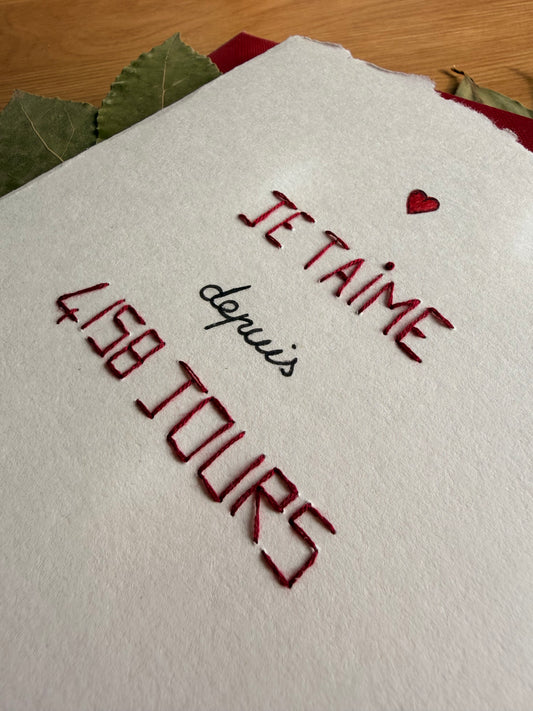 JE TAiME
depuis
4158 JOURS